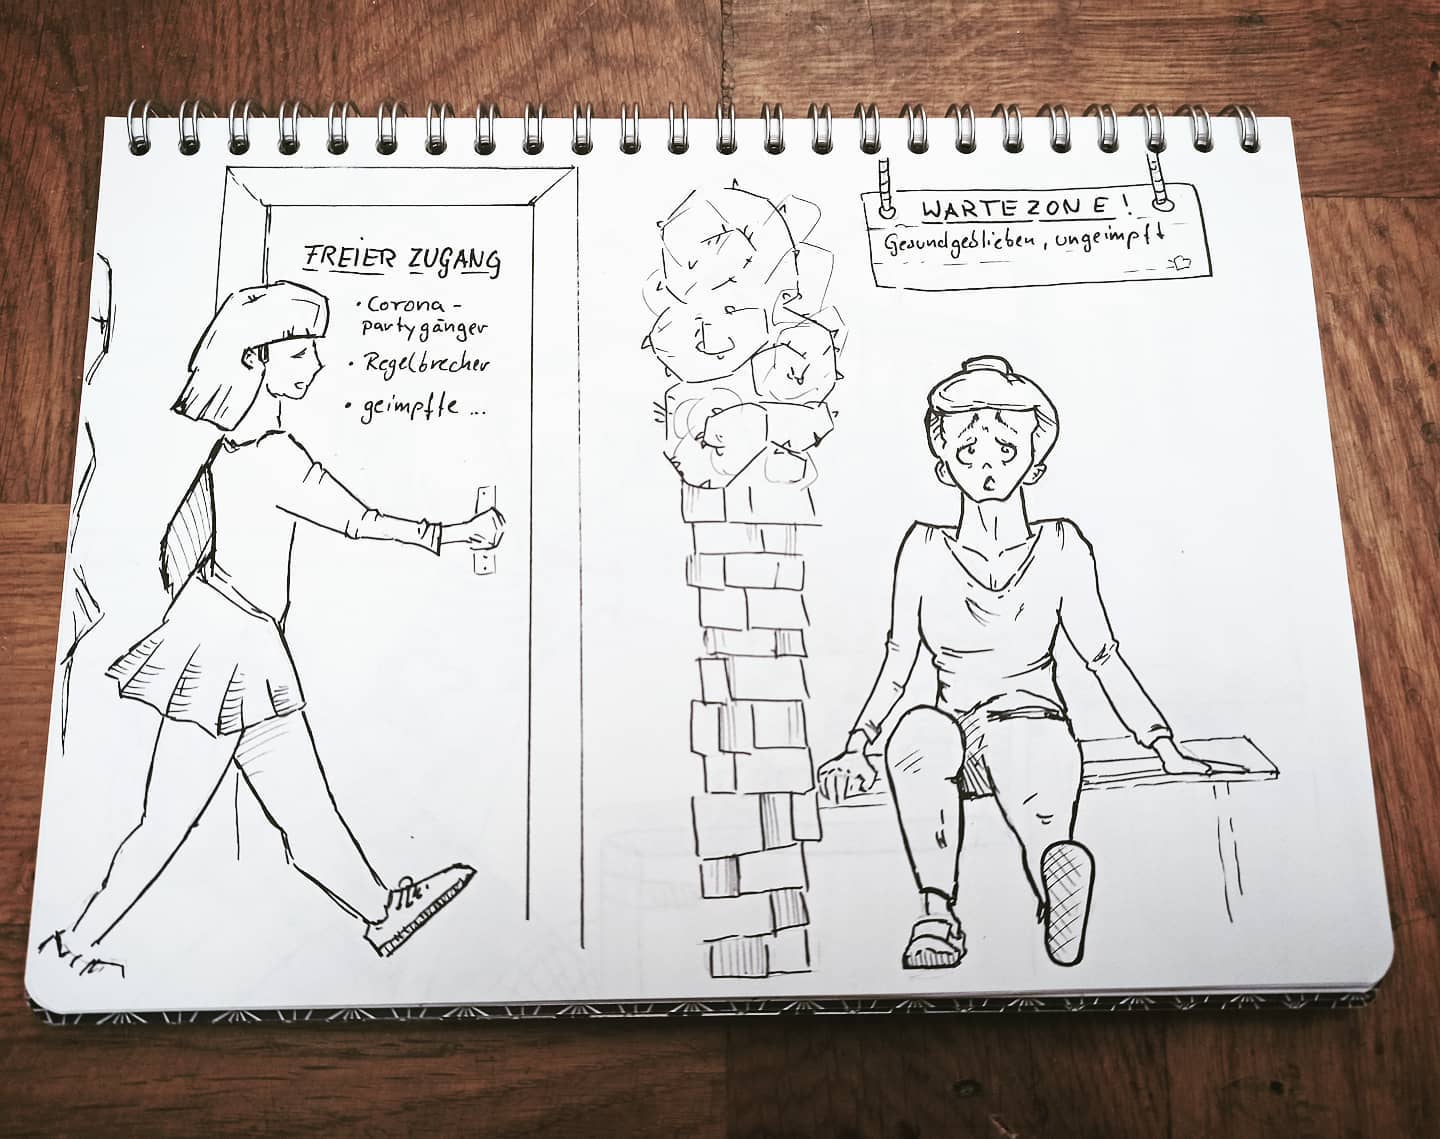 FREIER ZUGANG
• Corona -
partygänger
• Regelbrecher
• geimpfte ...
WARTEZONE!
Gesundgeblieben, ungeimpft